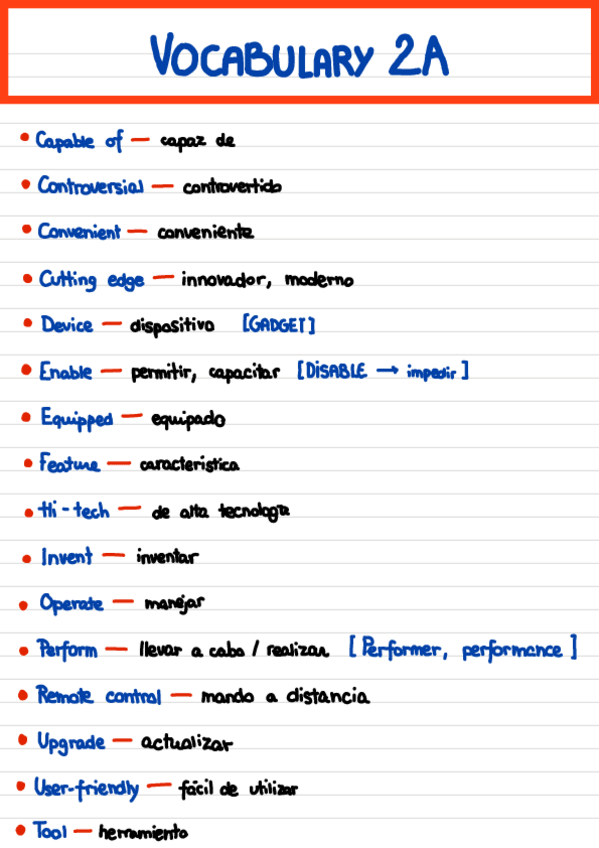 VOCABULARY 2A
• Capable of — capaz de
• Controversial — controvertido
• Convenient — conveniente
• Cutting edge — innovador, moderno
• Device — dispositivo [GADGET]
• Enable — permitir, capacitar [DISABLE → impedir]
• Equipped — equipado
• Feature — característica
• Hi-tech — de alta tecnología
• Invent — inventar
• Operate — manejar
• Perform — llevar a cabo / realizar [Performer, performance]
• Remote control — mando a distancia
• Upgrade — actualizar
• User-friendly — fácil de utilizar
• Tool — herramienta